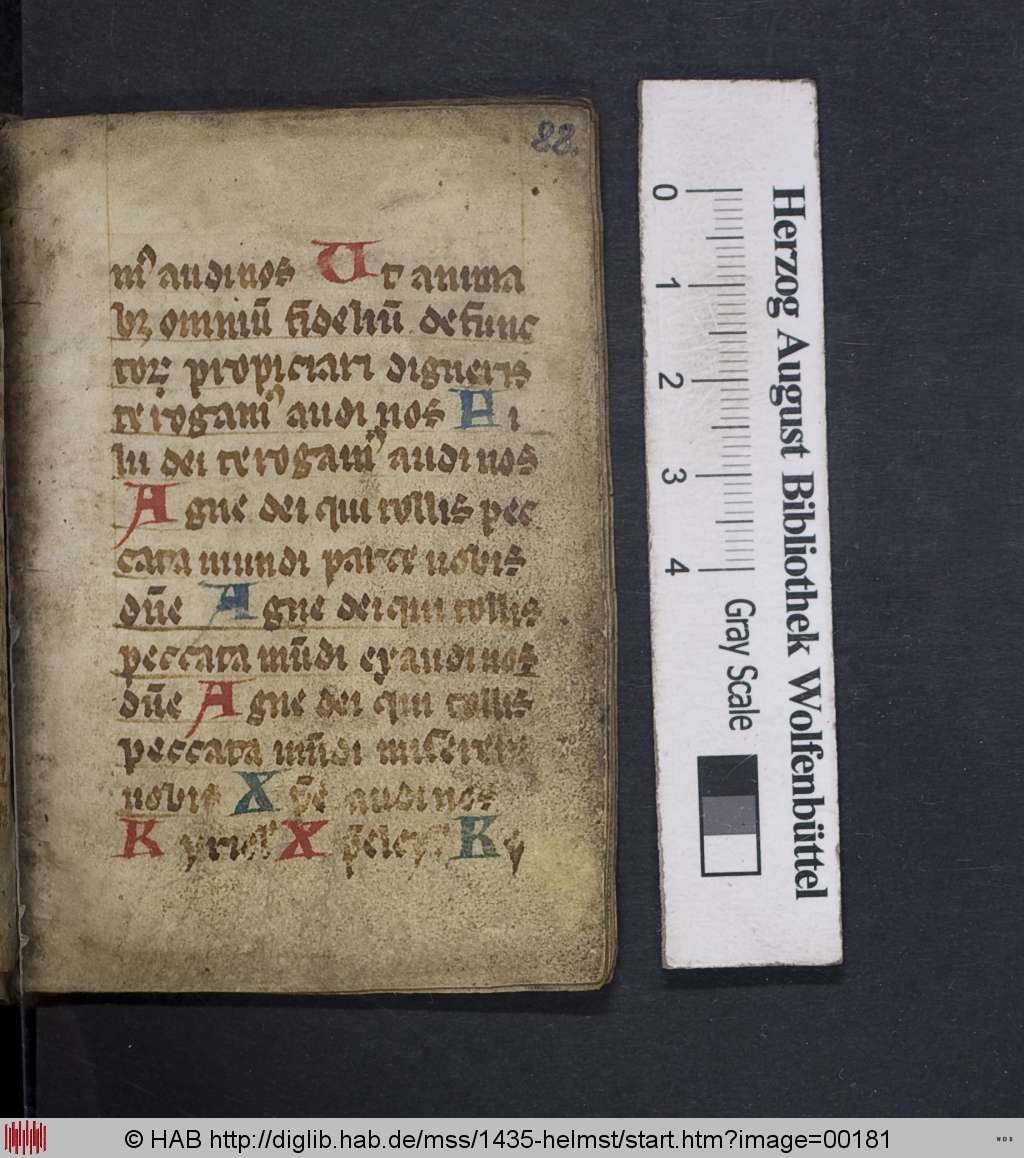 88.
mꝰ audi nos Ut anima
bꝫ omniū fideliū defunc
toꝝ propiciari digneris
te rogamꝰ audi nos Fi
lii dei te rogamꝰ audi nos
Agne dei qui tollis pec
cata mundi parce nobis
dn̄e Agne dei qui tollis
peccata mūdi exaudi nos
dn̄e Agne dei qui tollis
peccata mūdi miserere
nobis X audi nos
Kyriel X Ky
0 1 2 3 4
Gray Scale
Herzog August Bibliothek Wolfenbüttel
© HAB http://diglib.hab.de/mss/1435-helmst/start.htm?image=00181